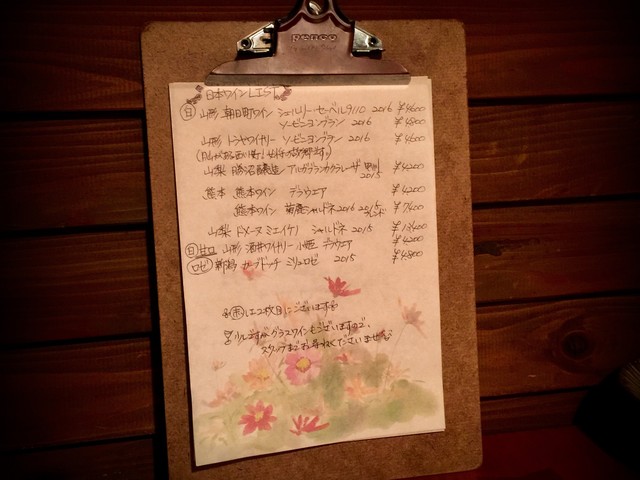 penco
日本ワインLIST
白 山形 朝日町ワイン シェルリー セーベル9110 2016 ¥4600
ソービニヨンブラン 2016 ¥4800
山形 トラヤワイナリー ソービニヨンブラン 2016 ¥4600
山梨 勝沼醸造 アルガブランカクラレーザ
2015 ¥4200
熊本 熊本ワイン デラウエア ¥4200
熊本ワイン 菊鹿シャルドネ 2016 2015 ¥7400
ブレンド
山梨 ドメーヌ ミエイケノ シャルドネ 2015
白 甘口 山形 酒井ワイナリー 小姫 デラウエア ¥4200
ロゼ 新潟 カーブドッチ ミリュロゼ 2015 ¥4800
赤は2枚目にございます
グラスワインもございますので、
スタッフまでお尋ねくださいませ